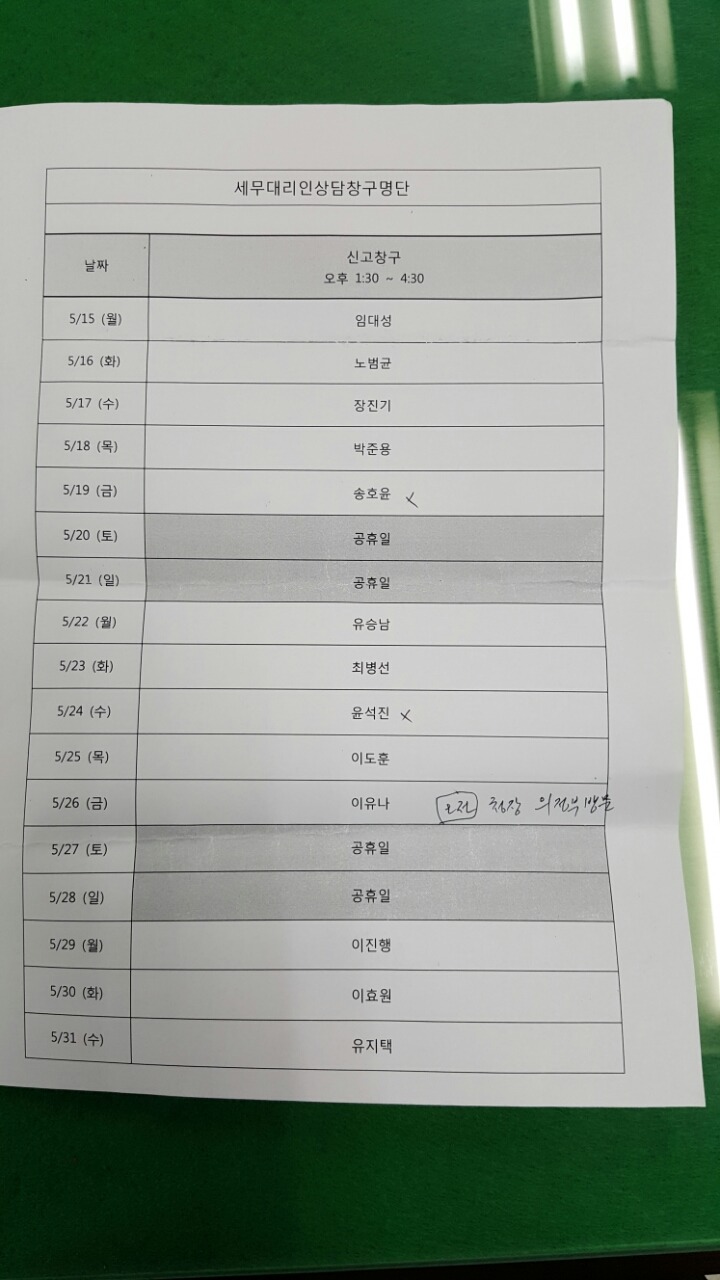 세무대리인상담창구명단
날짜 신고창구
오후 1:30 ~ 4:30
5/15 (월) 임대성
5/16 (화) 노범균
5/17 (수) 장진기
5/18 (목) 박준용
5/19 (금) 송호윤 ×
5/20 (토) 공휴일
5/21 (일) 공휴일
5/22 (월) 유승남
5/23 (화) 최병선
5/24 (수) 윤석진 ×
5/25 (목) 이도훈
5/26 (금) 이유나 오전 청장 의정부방문
5/27 (토) 공휴일
5/28 (일) 공휴일
5/29 (월) 이진행
5/30 (화) 이효원
5/31 (수) 유지택